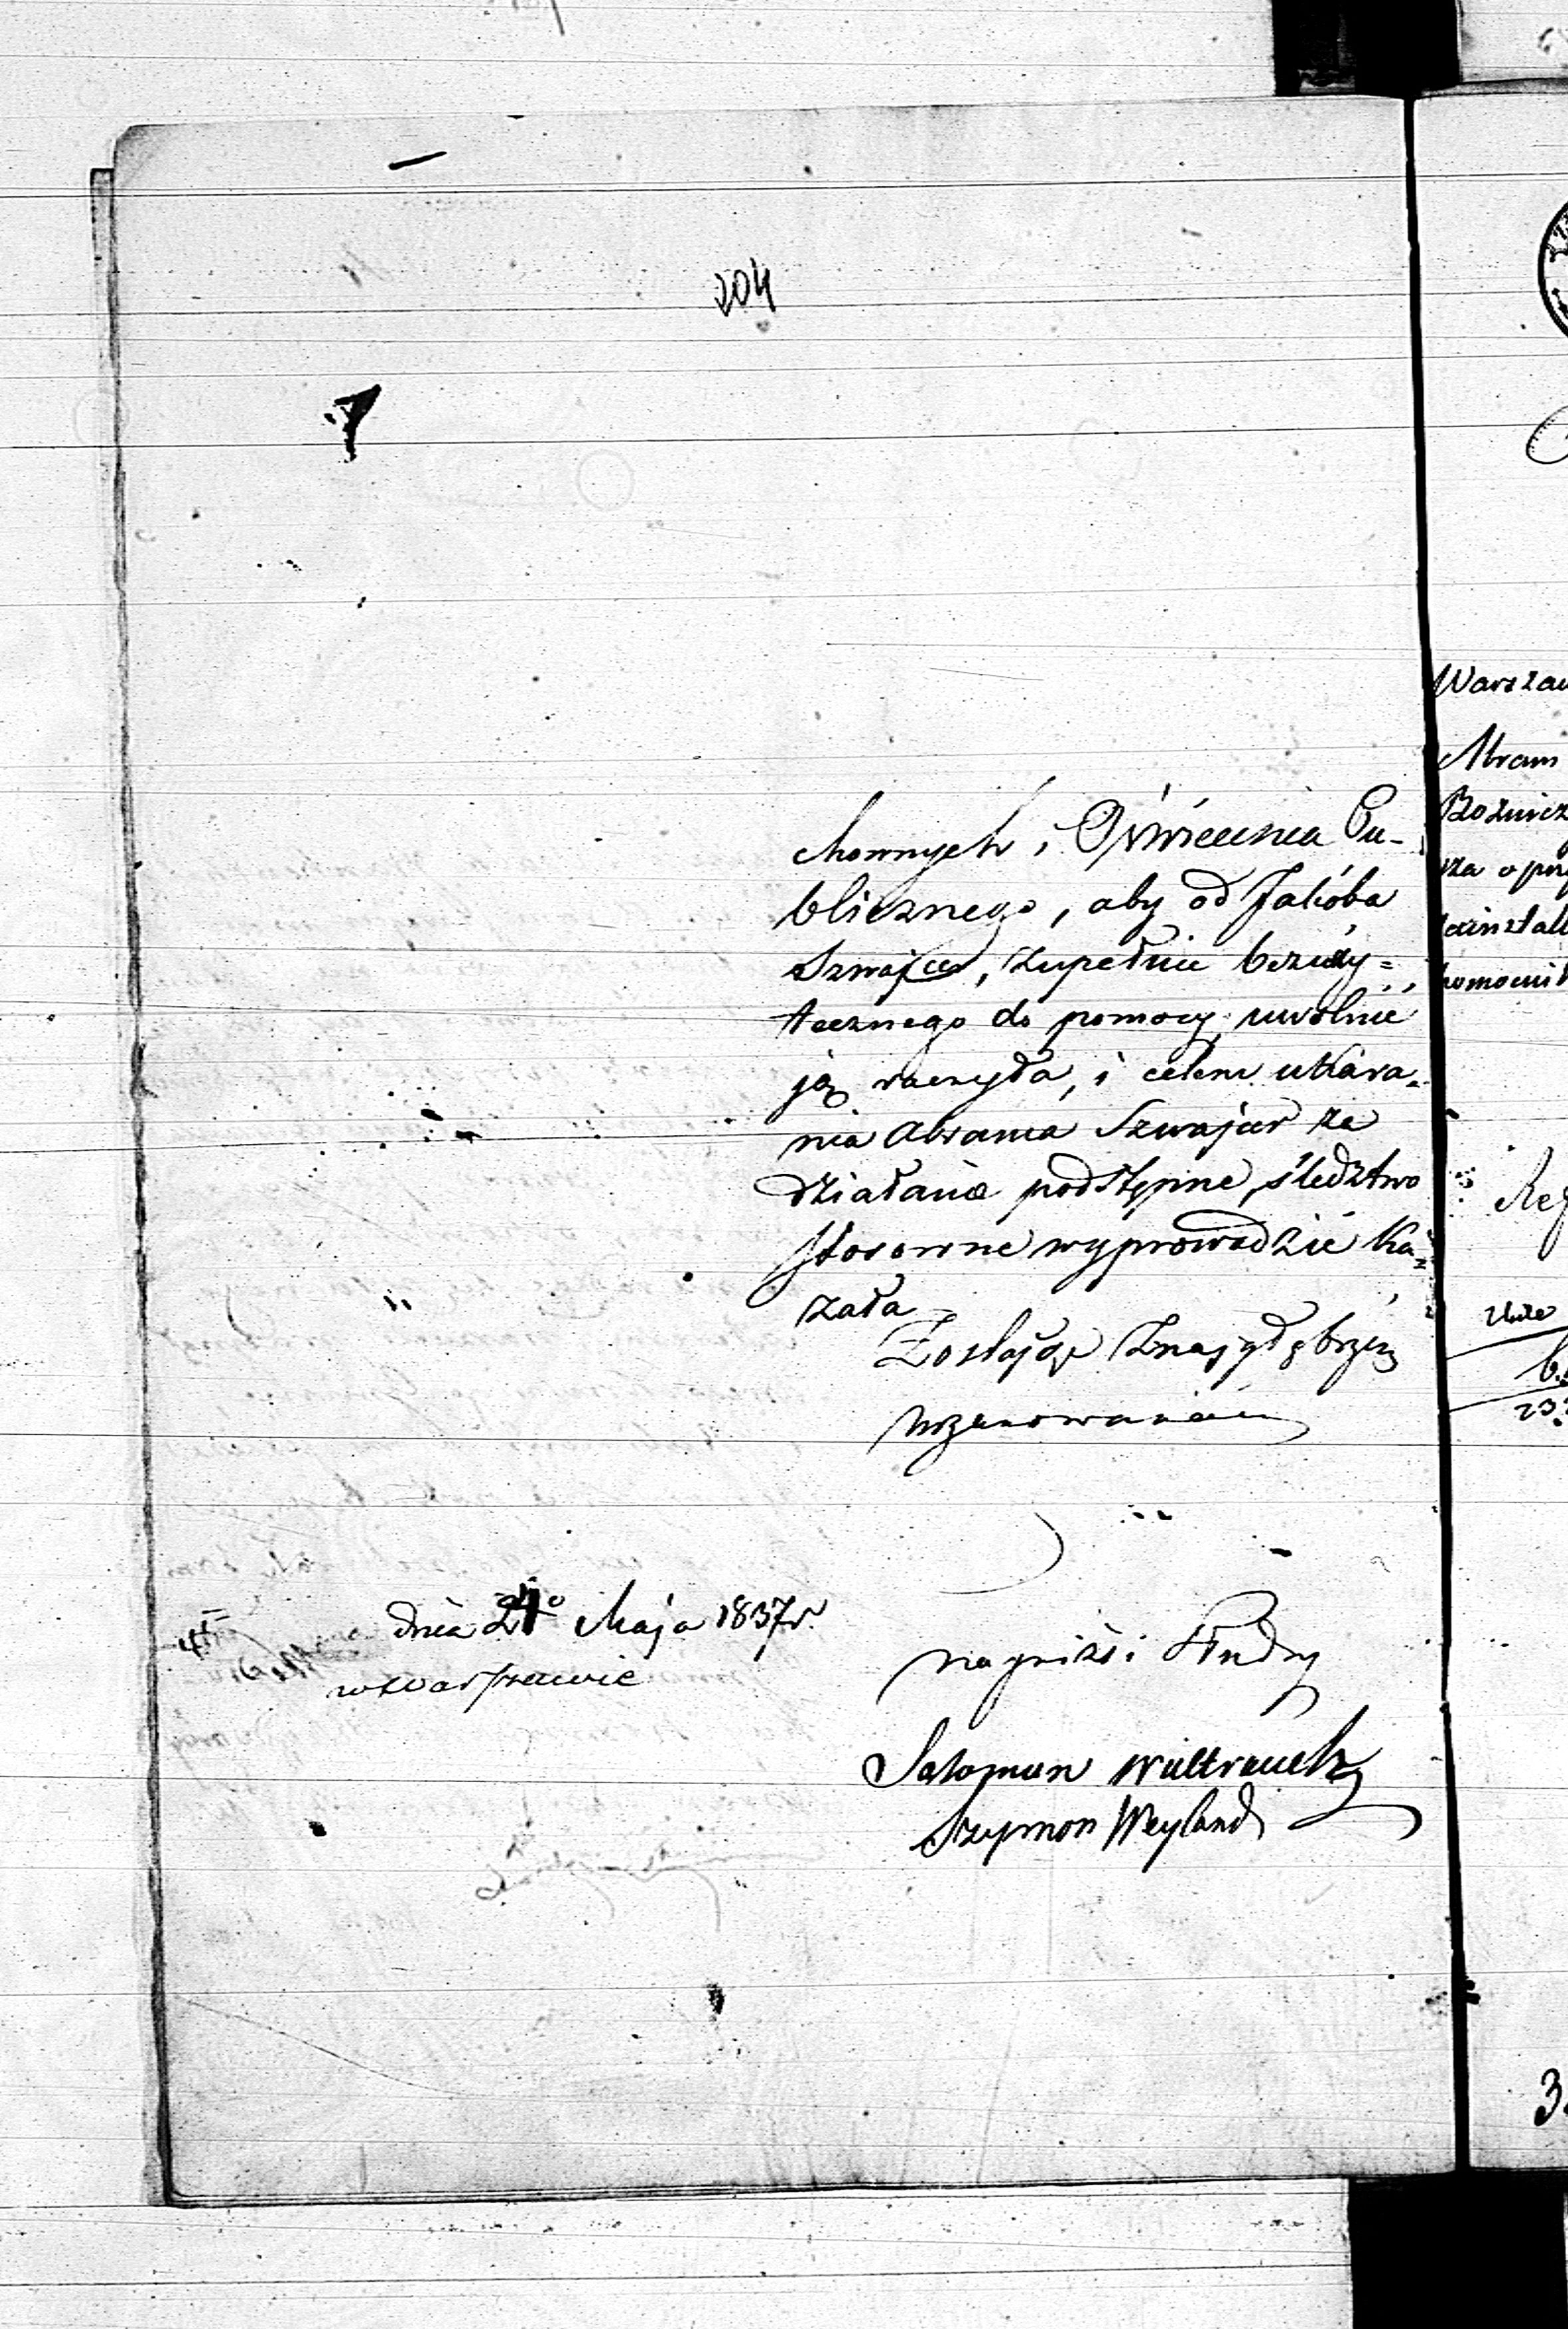 204
chownych i Oświecenia Pu-
blicznego, aby od Jakóba
Szwajcer, zupełnie bezuży=
tecznego do pomocy, uwolnić
ją raczyła, i celem ukara-
nia Abrama Szwajcer za
działanie podstępne, śledztwo
stosowne wyprowadzić ka=
zała
Zostając z najgłębszem
uszanowaniem
dnia 24o Maja 1837r.
w Warszawie
najniżsi Słudzy
Salomon
Szymon Weyland
Warszaw
Abram
Bożnicz
za o prz
zainstall
pomocnik